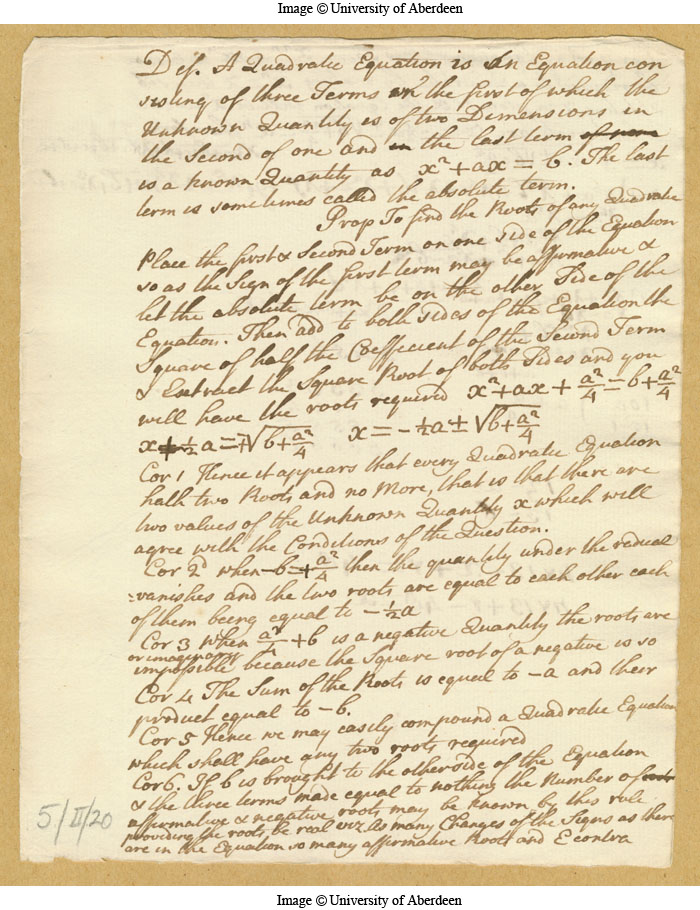 Image © University of Aberdeen
Def. A Quadratic Equation is An Equation con
sisting of three Terms in the first of which the
Unknown Quantity is of two Dimensions in
the Second of one and in the last term of none
is a known Quantity as x² + ax = b. The last
term is sometimes called the absolute term.
Prop To find the Roots of any Quadratic
Place the first & Second Term on one Side of the Equation
so as the Sign of the first term may be affirmative &
let the absolute term be on the other Side of the
Equation. Then add to both Sides of the Equation the
Square of half the Coefficient of the Second Term
& Extract the Square Root of both Sides and you
will have the roots required x² + ax + a²/4 = b + a²/4
x + ½a = ∓√b + a²/4 x = -½a ± √b + a²/4
Cor 1 Hence it appears that every Quadratic Equation
hath two Roots and no More, that is that there are
two values of the Unknown Quantity x which will
agree with the Conditions of the Question.
Cor 2d when -b = + a²/4 then the quantity under the radical
vanishes and the two roots are equal to each other each
of them being equal to -½a
Cor 3 When a²/4 + b is a negative Quantity the roots are
or imaginary
impossible because the Square root of a negative is so
Cor 4 The Sum of the Roots is equal to -a and their
product equal to -b.
Cor 5 Hence we may easily compound a Quadratic Equation
which shall have any two roots required
Cor 6. If b is brought to the other side of the Equation
& the three terms made equal to nothing the Number of
affirmative & negative roots may be known by this rule
providing the roots be real viz As many Changes of the Signs as there
are in the Equation so many affirmative Roots and E contra
5/II/20
Image © University of Aberdeen